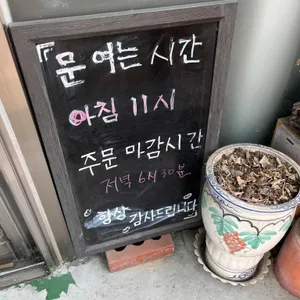 『문 여는 시간
아침 11시
주문 마감시간
저녁 6시30분
항상
감사드립니다